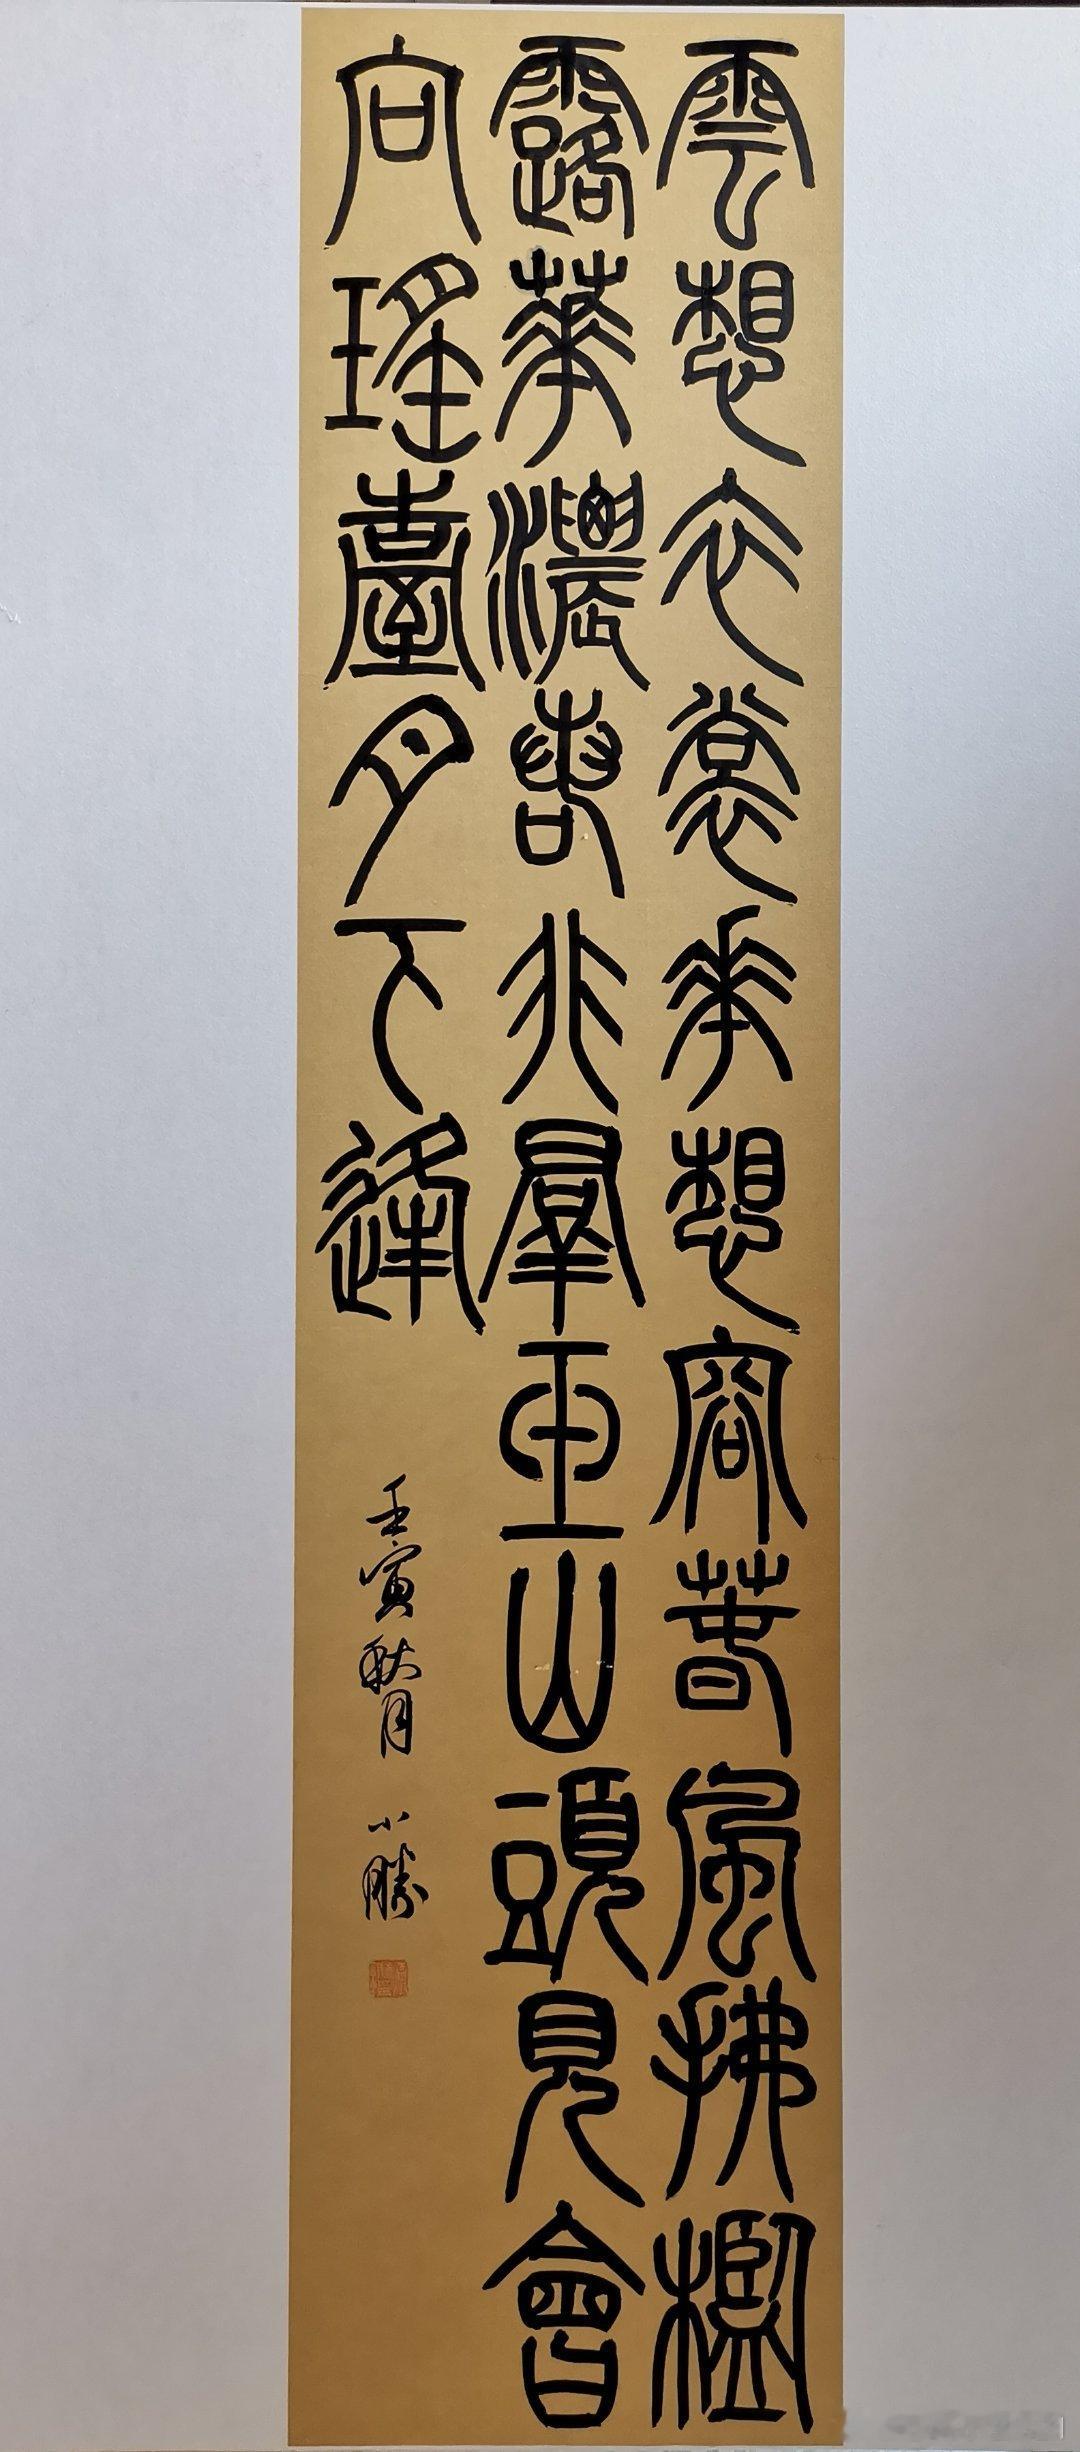 雲想衣裳華想容春風拂檻
露華濃若非羣玉山頭見會
向瑤臺月下逢
壬寅秋月 小勝